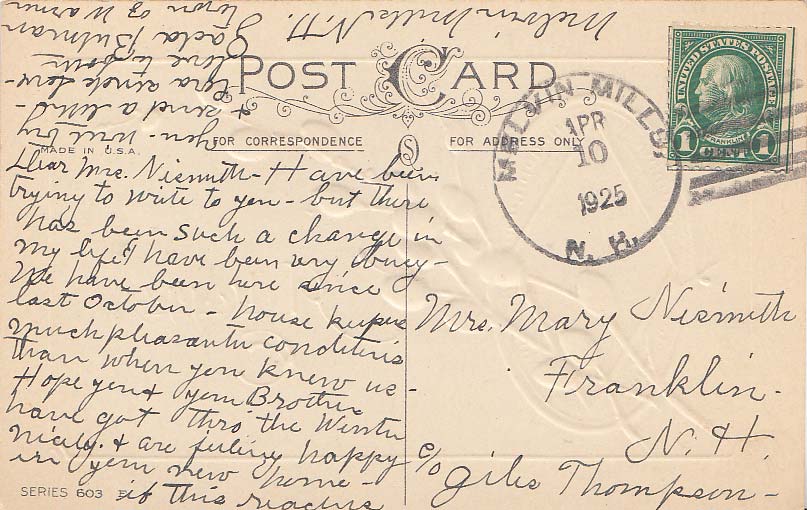 POST CARD
FOR CORRESPONDENCE
FOR ADDRESS ONLY
MADE IN U.S.A.
Dear Mrs. Nismith - Have been
trying to write to you - but there
has been such a change in
my life I have been very busy -
We have been here since
last October - house keeper
much pleasanter conditions
than when you knew us -
Hope you & your Brother
have got thro the Winter
nicely & are feeling happy
in your new home -
if this reaches
you will try
& send a
here to
Bitman
town of Warner
Melvin Mills N.H.
SERIES 603
MELVIN MILLS,
APR
10
1925
N. H.
UNITED STATES POSTAGE
FRANKLIN
1 CENT 1
Mrs. Mary Nismith
Franklin -
N. H.
c/o Giles Thompson -